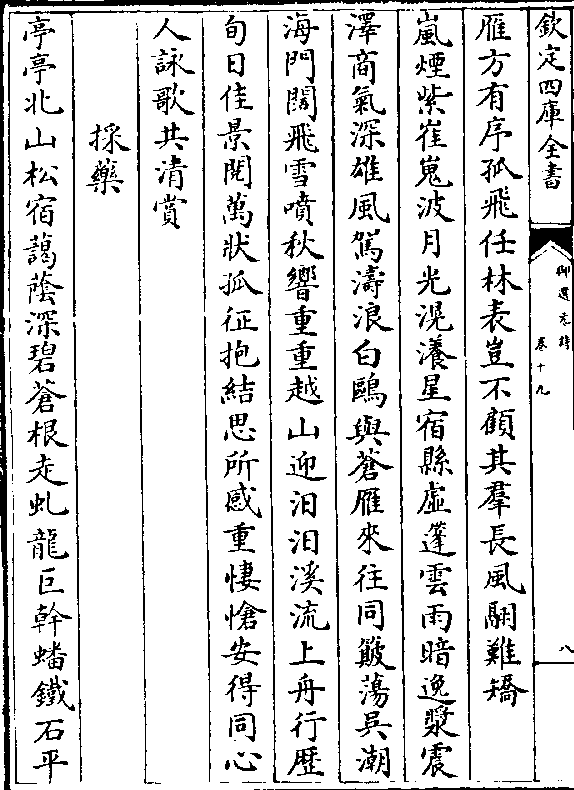 欽定四庫全書
御選元詩
卷十九
八
雁方有序孤飛任林表豈不顧其羣長風翮難矯
嵐煙紫崔嵬波月光滉瀁星宿縣虛蓬雲雨暗逸漿震
澤商氣深雄風駕濤浪白鷗與蒼雁來往同簸蕩吳潮
海門闊飛雪噴秋響重重越山迎汩汩溪流上舟行歷
旬日佳景閱萬狀孤征抱結思所感重悽愴安得同心
人詠歌共清賞
採藥
亭亭北山松宿藹蔭深碧蒼根走虬龍巨幹蟠鐵石平